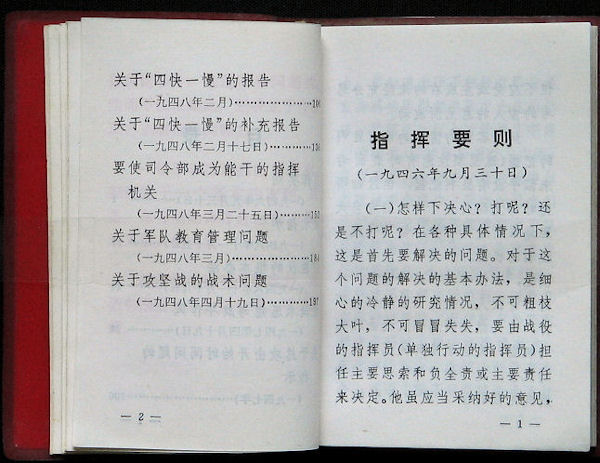 关于“四快一慢”的报告
(一九四八年二月)
关于“四快一慢”的补充报告
(一九四八年二月十七日)
要使司令部成为能干的指挥
机关
(一九四八年三月二十五日)
关于军队教育管理问题
(一九四八年三月)
关于攻坚战的战术问题
(一九四八年四月十九日)
— 2 —
指挥要则
(一九四六年九月三十日)
(一)怎样下决心?打呢?还
是不打呢?在各种具体情况下,
这是首先要解决的问题。对于这
个问题的解决的基本办法,是细
心的冷静的研究情况,不可粗枝
大叶,不可冒冒失失,要由战役
的指挥员(单独行动的指挥员)担
任主要思索和负全责或主要责任
来决定。他虽应当采纳好的意见,
— 1 —